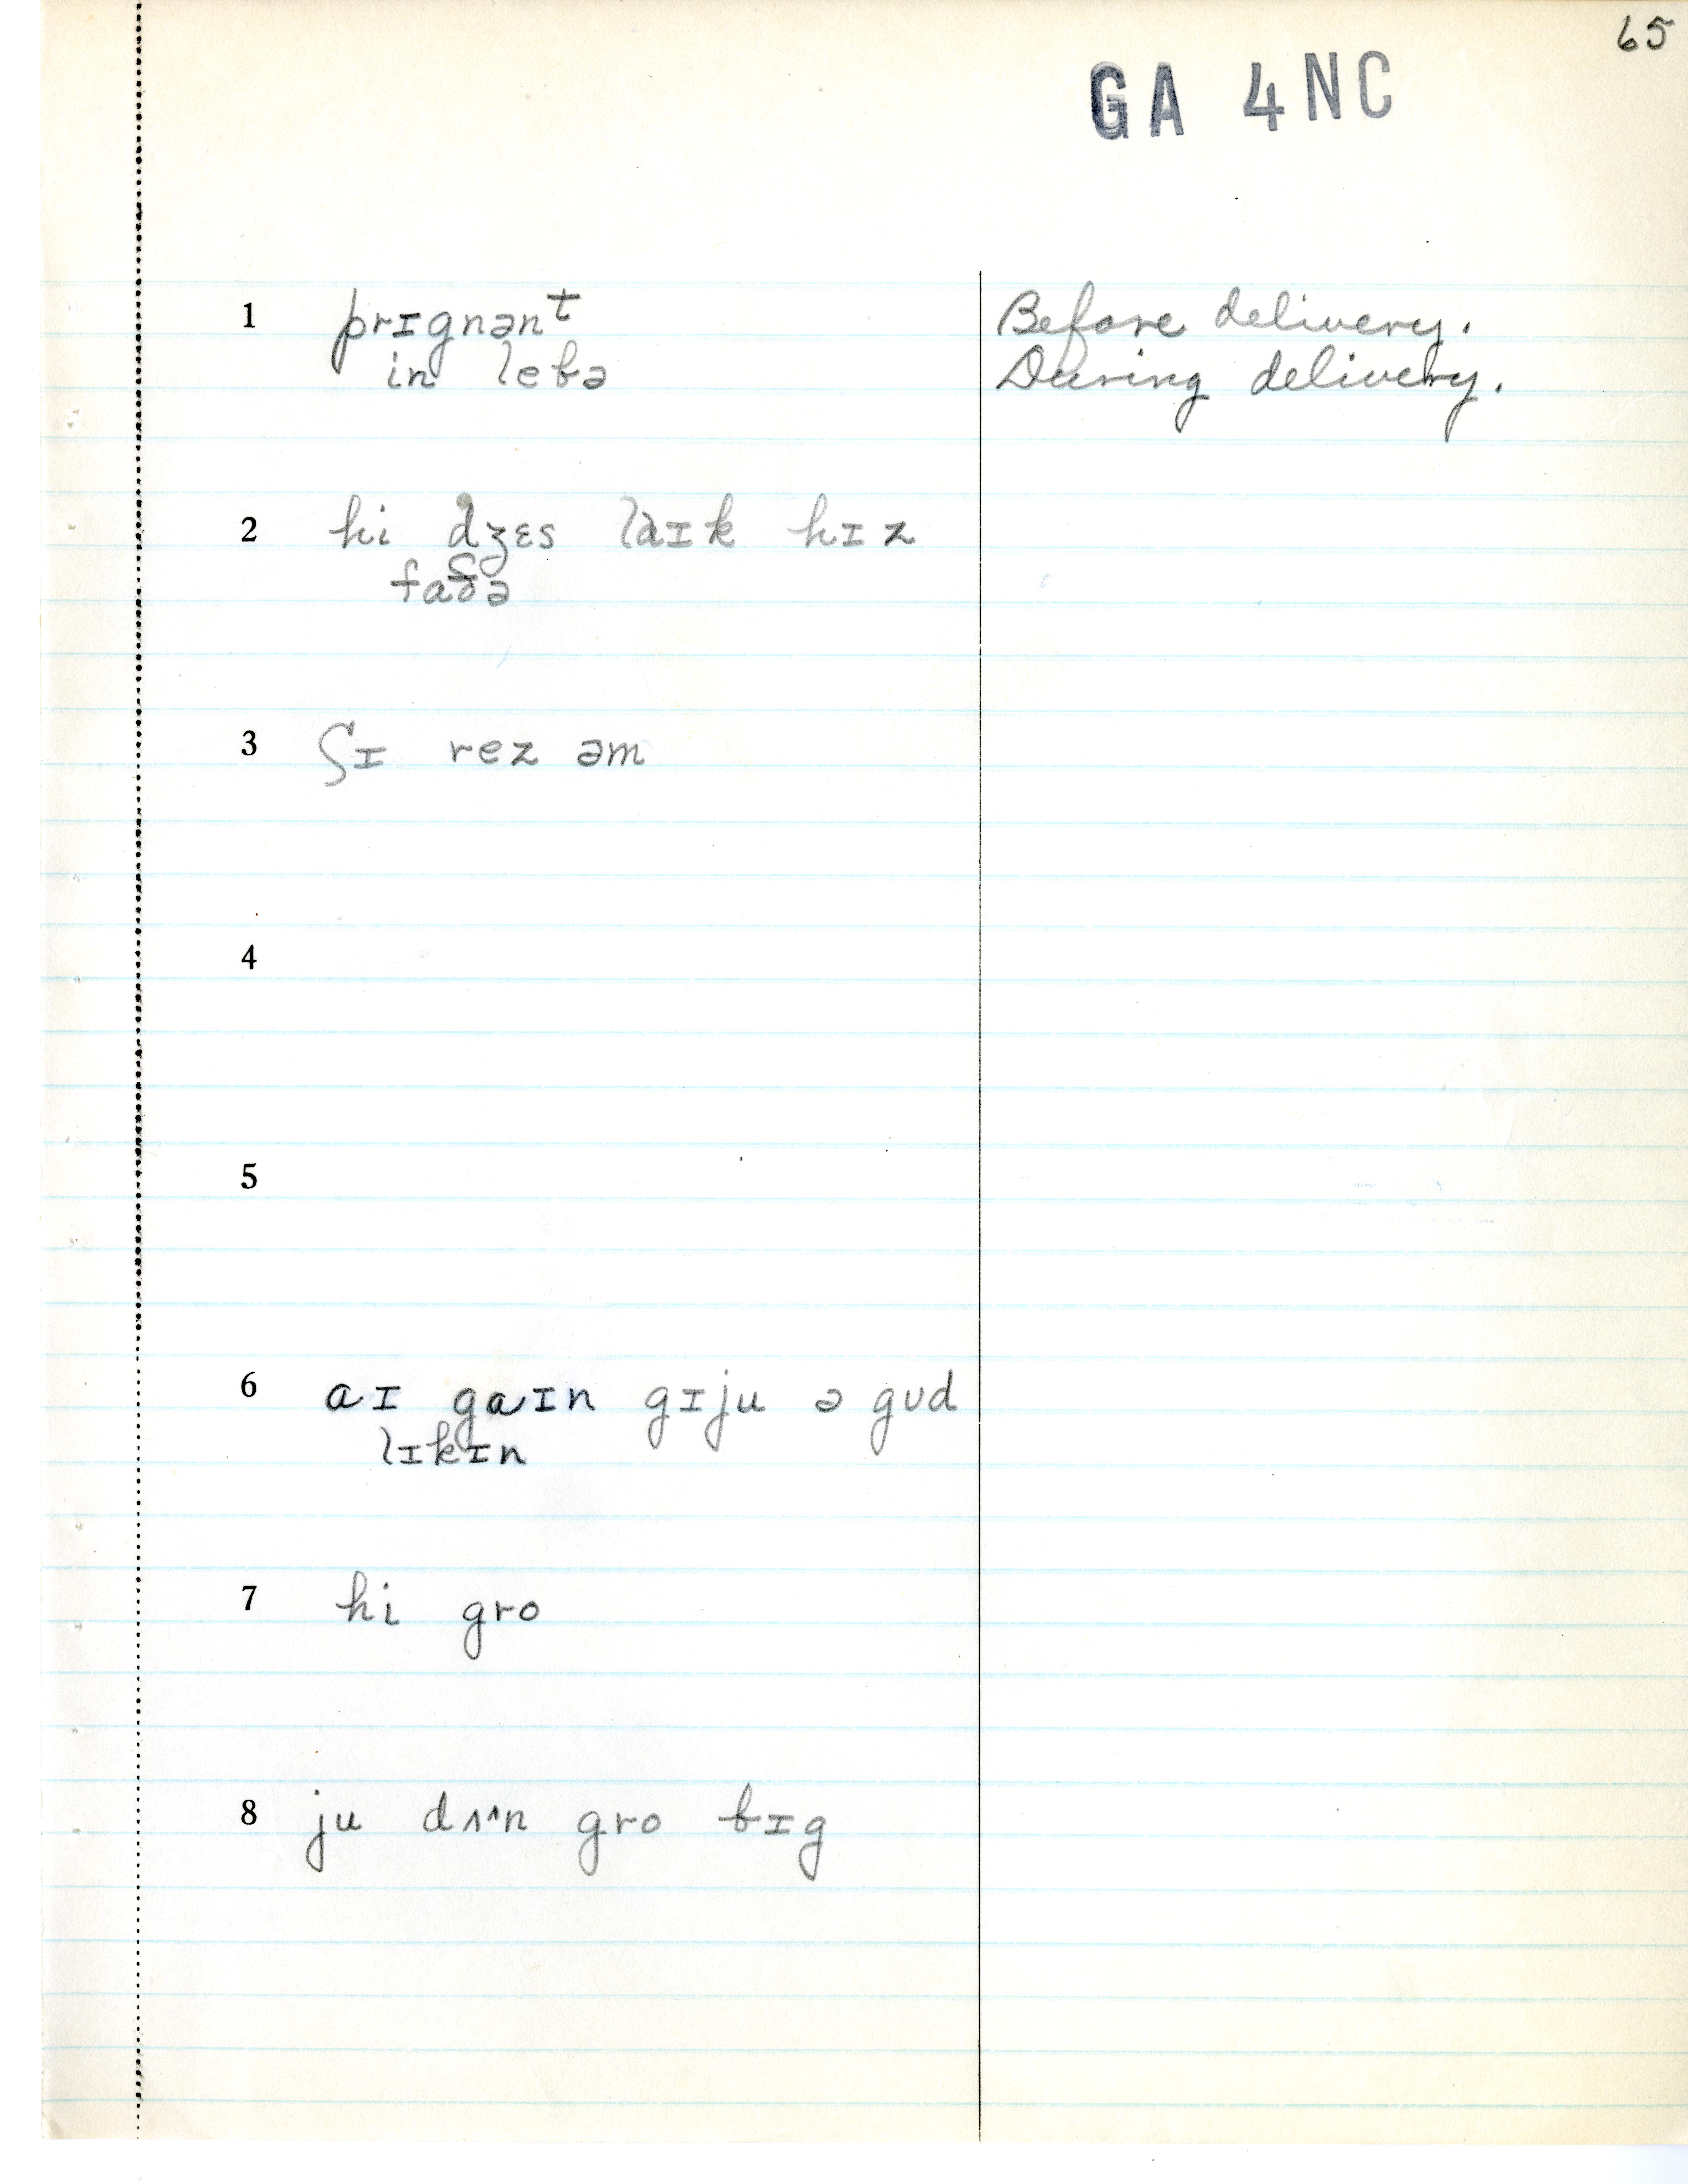 65
GA 4NC
1 prɪgnənᵗ Before delivery.
in lebə During delivery.
2 hi dʒɛs laɪk hɪz
faðə
3 ʃɪ rez əm
4
5
6 aɪ gaɪn gɪju ə gʊd
lɪkɪn
7 hi gro
8 ju dʌᶺn gro bɪg